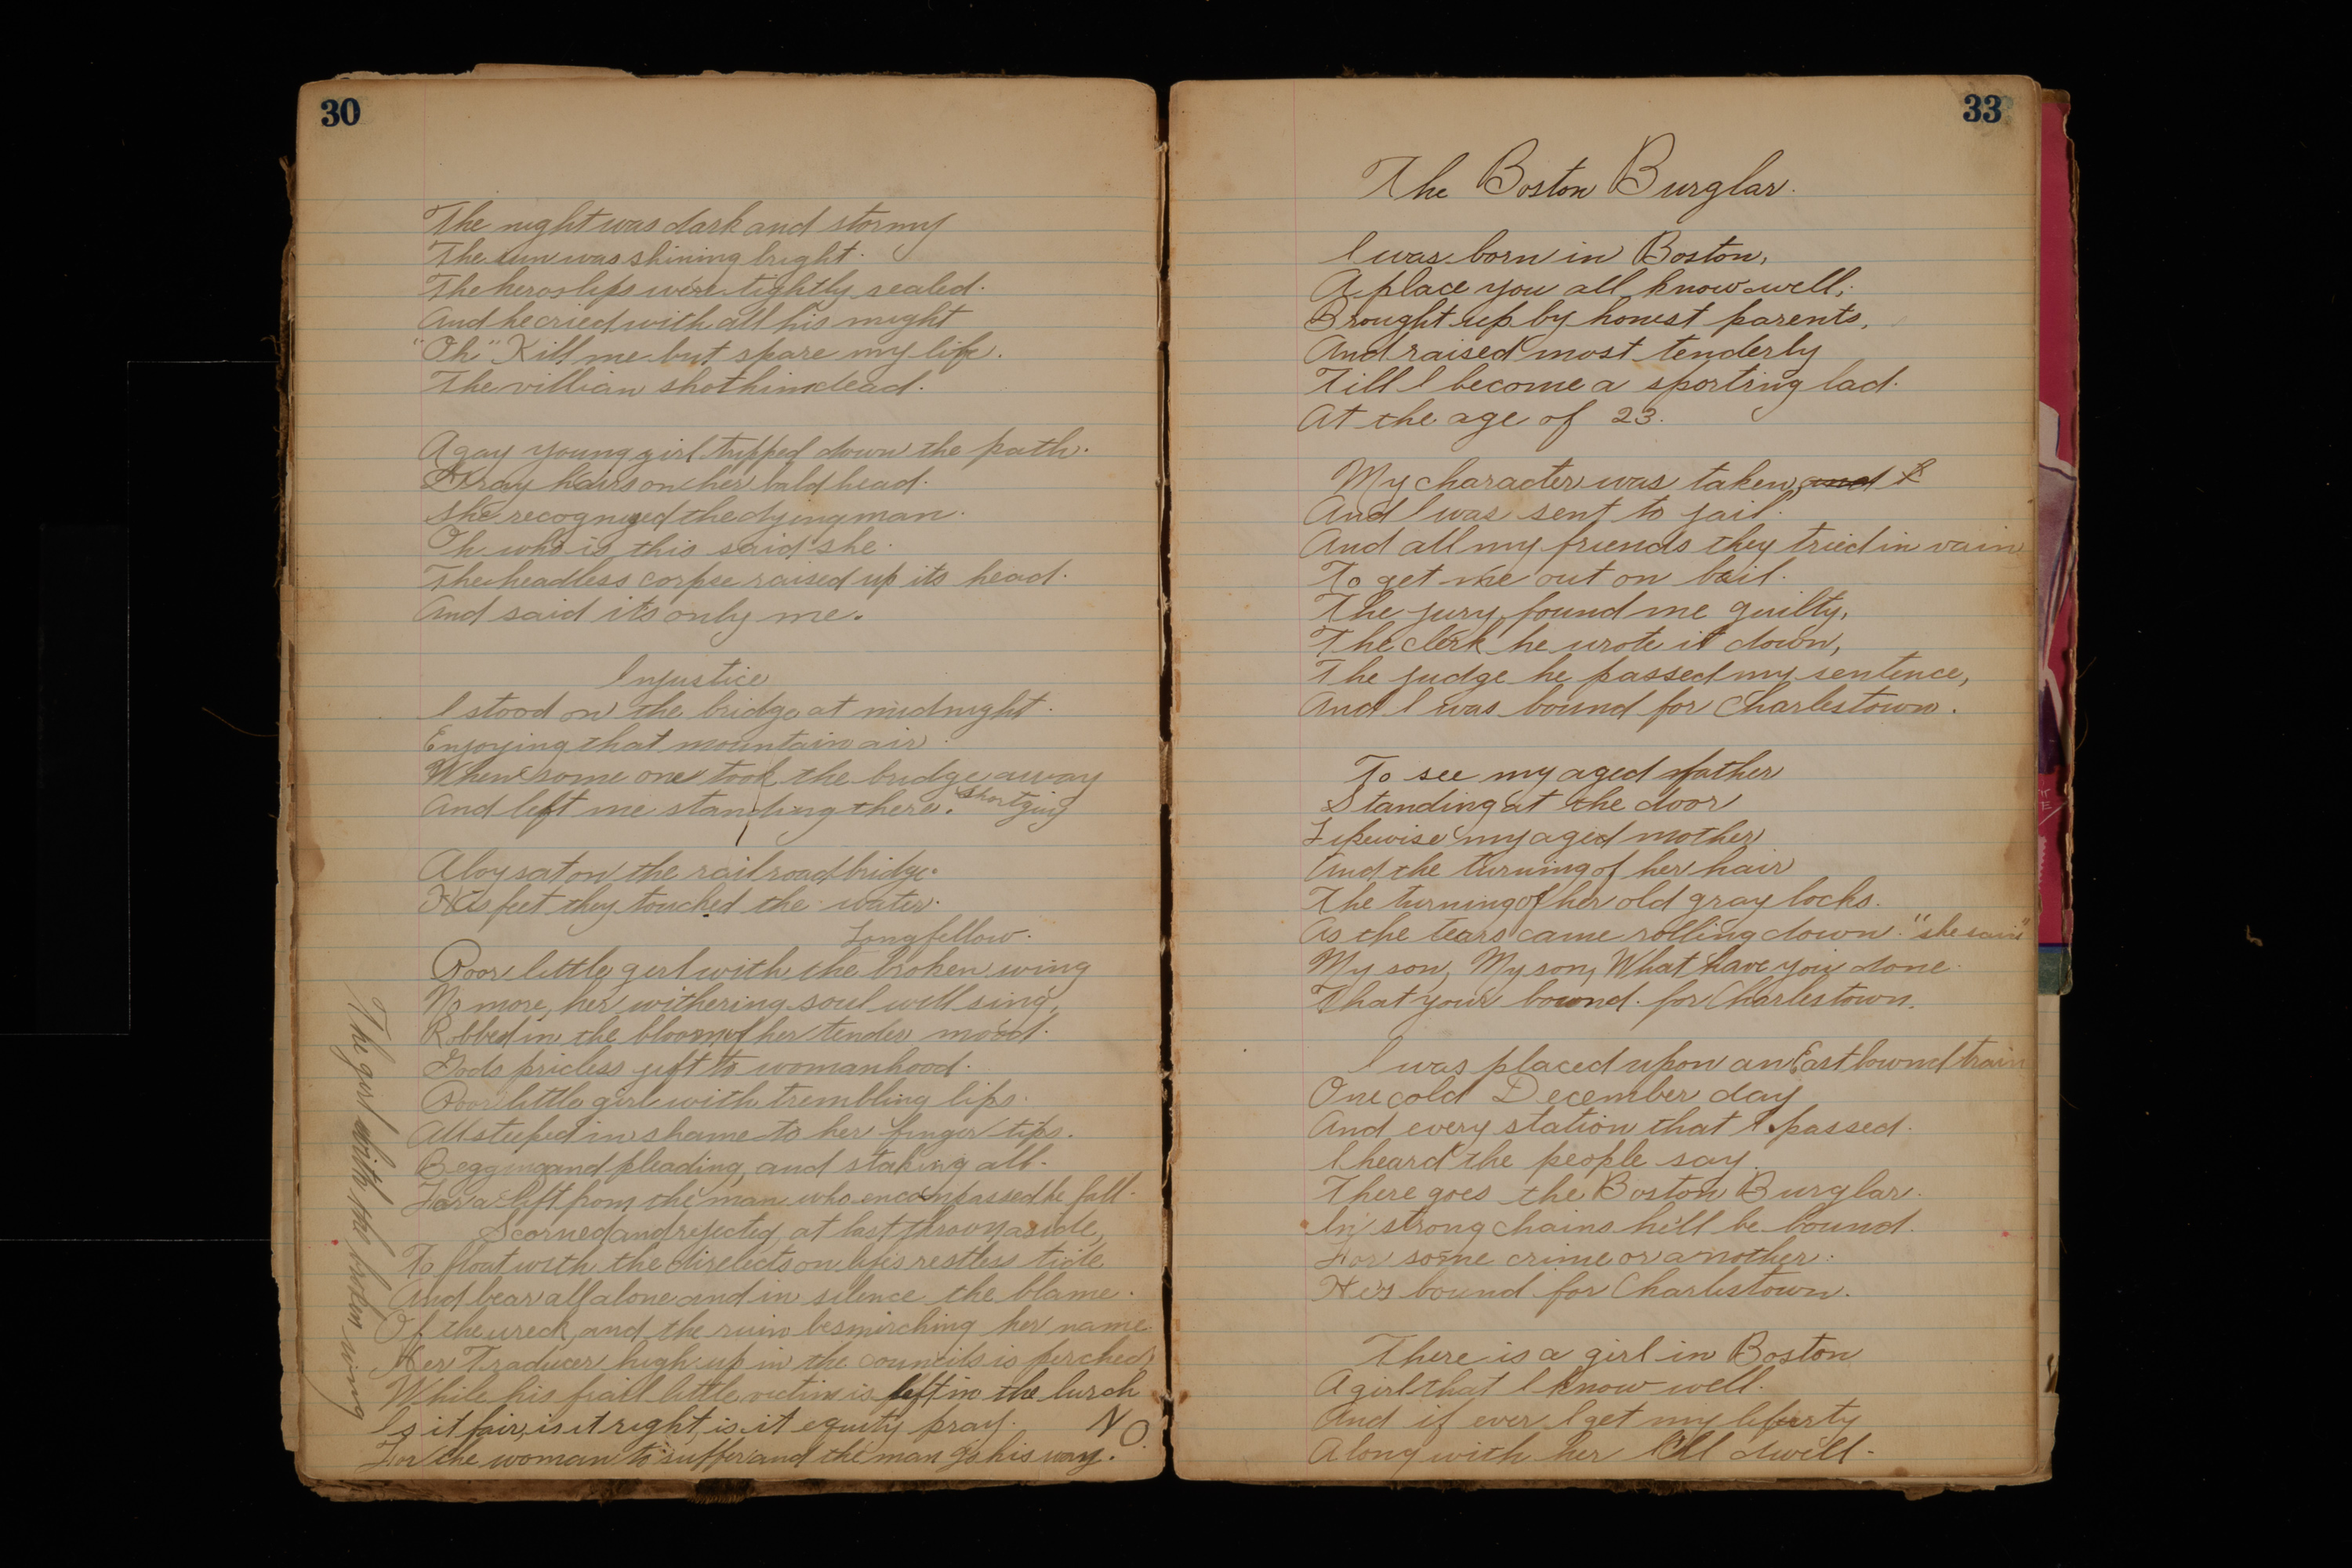 30
The night was dark and stormy
The sun was shining bright.
The heros lips were tightly sealed.
And he cried with all his might
"Oh" Kill me but spare my life.
The villian shot him dead.
A gay young girl tripped down the path.
Gray hairs on her bald head.
She recognized the dying man.
Oh who is this said she.
The headless corpse raised up its head.
And said its only me.
Injustice
I stood on the bridge at midnight.
Enjoying that mountain air.
When some one took the bridge away
And left me standing there.
A boy sat on the railroad bridge.
His feet they touched the water.
Longfellow.
Poor little girl with the broken wing
No more, her withering soul will sing,
Robbed in the bloom of her tender mood.
Gods pricless gift to womanhood.
Poor little girl with trembling lips.
All steeped in shame to her finger tips.
Begging and pleading, and staking all.
For a lift from the man who encompassed he fall.
Scorned and rejected, at last thrown aside,
To float with the direlects on lifes restless tide
And bear all alone and in silence the blame.
Of the wreck, and the ruin besmirching her name
Her Traducer high up in the councils is perched
While his frail little victim is left in the lurch
Is it fair, is it right, is it equity pray. NO.
For the woman to suffer and the man go his way.
The girl with the broken wing
33
The Boston Burglar.
I was born in Boston,
A place you all know well;
Brought up by honest parents,
And raised most tenderly
Till I become a sporting lad.
At the age of 23.
My character was taken, and
And I was sent to jail.
And all my friends they tried in vain
To get me out on bail.
The jury found me guilty,
The clerk he wrote it down,
The judge he passed my sentence,
And I was bound for Charlestown.
To see my aged father
Standing at the door
Likewise my aged mother
And the turning of her hair
The turning of her old gray locks.
As the tears came rolling down. "she said"
My son, My son, What have you done.
That your bound for Charlestown.
I was placed upon an East bownd train
One cold December day
And every station that I passed.
I heard the people say.
There goes the Boston Burglar.
In strong chains he'll be bound.
For some crime or another.
He's bound for Charlestown.
There is a girl in Boston
A girl that I know well.
And if ever I get my liberty
Along with her I'll dwell.